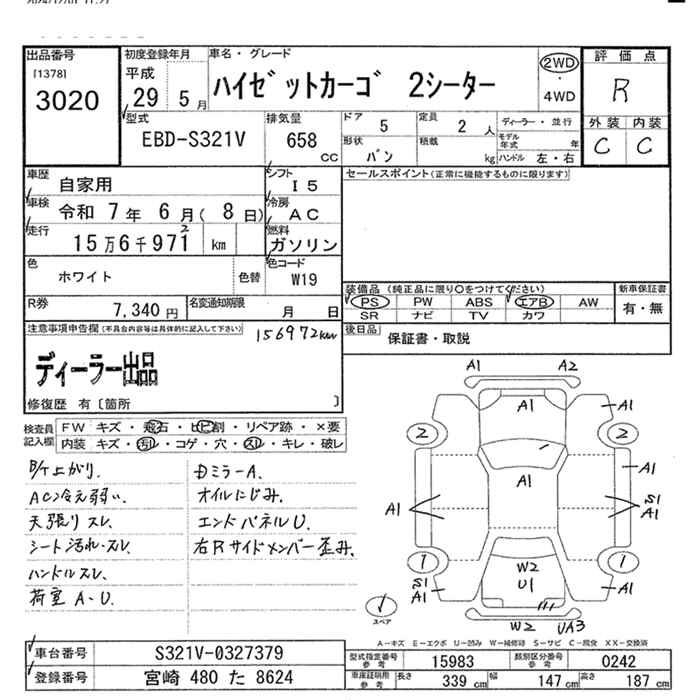 出品番号
[1378]
3020
初度登録年月
平成
29 5 月
車名・グレード
ハイゼットカーゴ 2シーター
2WD
・
4WD
評価点
R
外装 内装
C C
型式
EBD-S321V
排気量
658
cc
ドア
5
定員
2 人
ディーラー・並行
モデル年式 年
形状
バン
積載
kg
ハンドル 左・右
車歴
自家用
シフト
I 5
セールスポイント(正常に機能するものに限ります)
車検
令和 7 年 6 月( 8 日)
冷房
AC
走行
15万6千971 km
2
燃料
ガソリン
色
ホワイト
色替
色コード
W19
装備品 (純正品に限り○をつけてください)
新車保証書
PS PW ABS エアB AW
有・無
SR ナビ TV カワ
R券
7,340 円
名変通知期限
月 日
後日品
保証書・取説
注意事項申告欄(不具合内容等は具体的に記入して下さい)
156972km
ディーラー出品
修復歴 有〔箇所 〕
検査員記入欄
FW キズ・飛石・ヒビ割・リペア跡・×要
内装 キズ・汚れ・コゲ・穴・スレ・キレ・破レ
B/ケ上がり.
ACン冷え弱い.
天張りスレ.
シート汚れ・スレ.
ハンドルスレ.
荷室A・U.
Dミラー A.
オイルにじみ.
エンドパネルU.
右Rサイドメンバー歪み.
A1 A2
A1
A1 A1
2 2
A1
A1
A1
S1
A1
1 1
W2
U1
S1
A1
A1
W2 UA3
スペア
A-キズ E-エクボ U-凹み W-補修跡 S-サビ C-腐食 XX-交換済
車台番号
S321V-0327379
登録番号
宮崎 480 た 8624
型式指定番号
参考
15983
類別区分番号
参考
0242
車庫証明用
参考
長さ
339 cm
幅
147 cm
高さ
187 cm